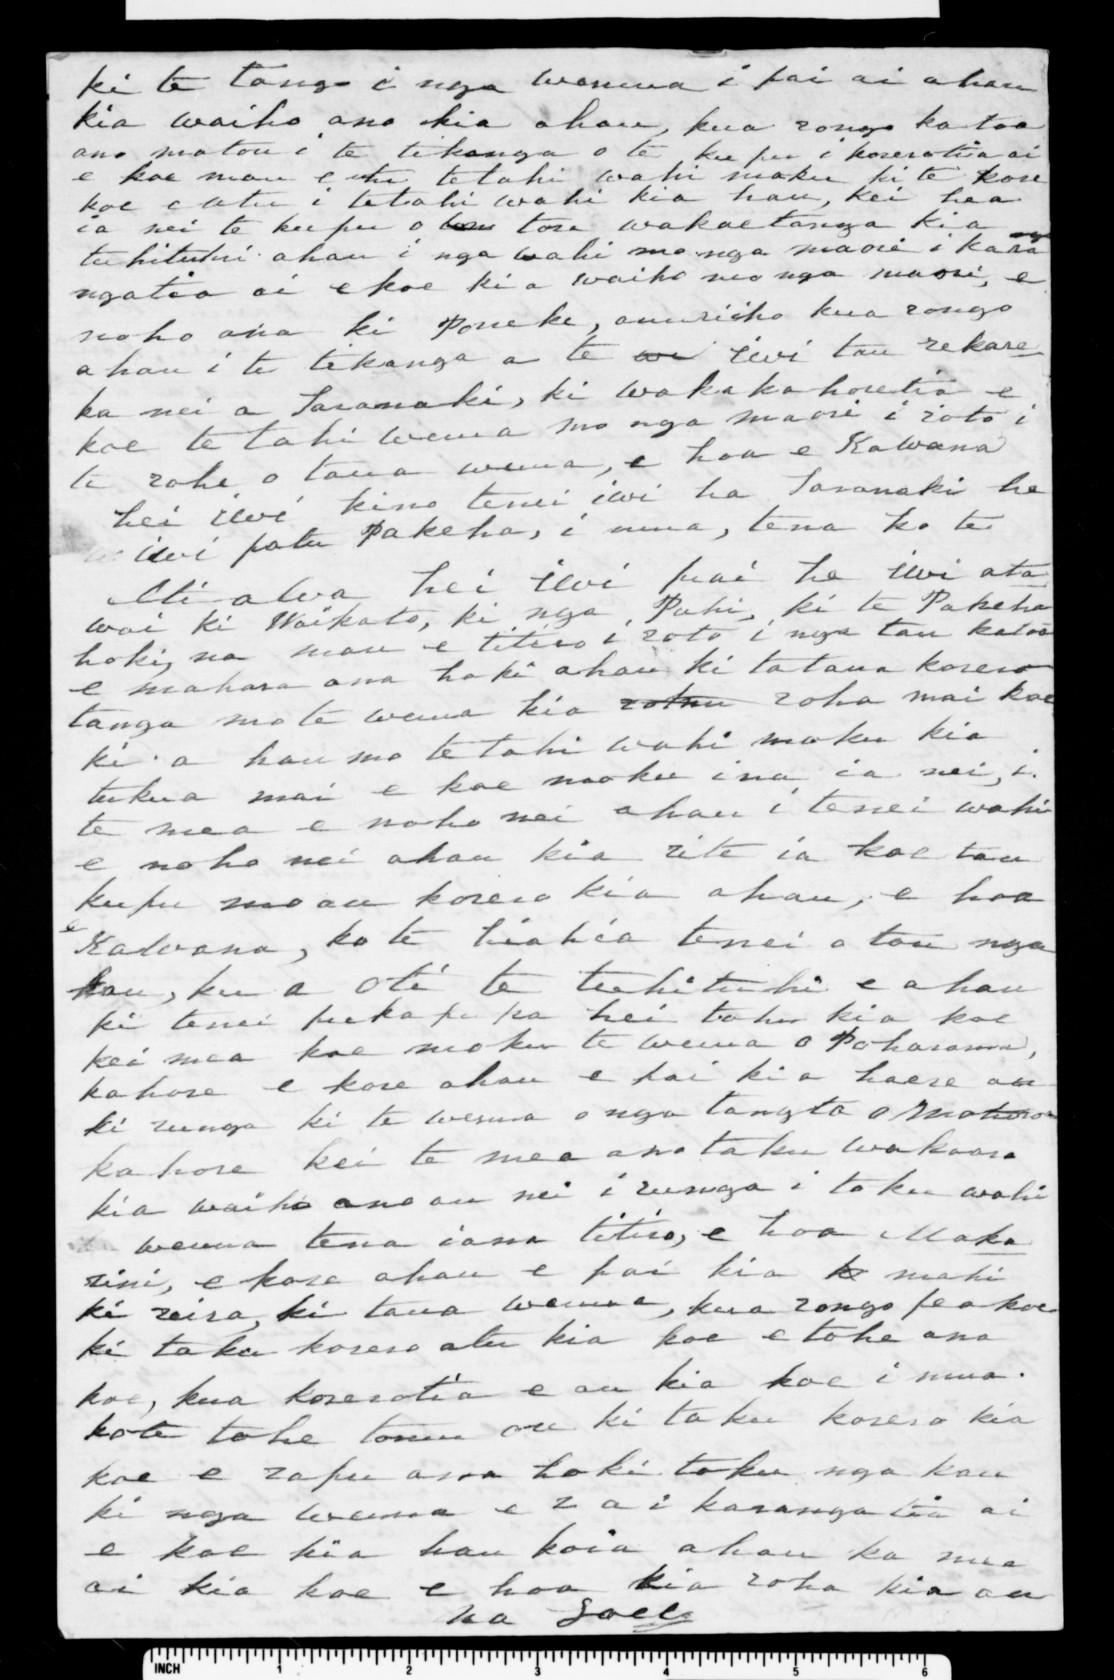 ki te tango i nga wenua i pai ai ahau
kia waiho ano kia ahau, kua rongo katoa
ano matou i te tikanga o te kupu i korerotia ai
e koe mau e utu tetahi wahi maku ki te kore
koe e utu i tetahi wahi kia hau, kei hea
ia nei te kupu o tou wakaetanga kia
tuhituhi ahau i nga wahi mo nga maori i kara
ngatia ai e koe kia waiho mo nga maori, e
noho ana ki Poneke, auuriiho kua rongo
ahau i te tikanga a te iwi tau rekare
ka nei a Taranaki, ki wakakahoretia e
koe te tahi wenua mo nga maori i roto i
te rohe o taua wenua, e hoa e Kawana
hei iwi kino tenei iwi ha Taranaki he
iwi patu Pakeha, i mua, tena ko te
Ati awa hei iwi pai he iwi ata
wai ki Waikato, ki nga Puhi, ki te Pakeha
hoki, na mau e titiro i roto i nga tau katoa
e mahara ana hoki ahau ki tataua korero
tanga mo te wenua kia roha mai koe
ki a hau mo te tahi wahi maku kia
tukua mai e koe maku ina ia nei, i
te mea e noho nei ahau i tenei wahi
e noho nei ahau kia rite ia koe tau
kupu mo au korero kia ahau, e hoa
e Kawana, ko te hiahia tenei o tou nga
kau, ku a oti te tuhituhi e ahau
ki tenei pukapuka hei tohu kia koe
kei mea koe moku te wenua o Poharama,
kahore e kore ahau e pai kia haere au
ki runga ki te wenua o nga tangta o
kahore kei te mea ano taku wakaaro
kia waiho ano au nei i runga i toku wahi
wenua tena iana titiro, e hoa Maka
rini, e kore ahau e pai kia mahi
ki reira, ki taua wenua, kua rongo pea koe
ki taku korero atu kia koe e tohe ana
koe, kua korerotia e au kia koe i mua.
kote tohe tonu au ki taku korero kia
koe e rapu ana hoki toku nga kau
ki nga wenua e ra i karangatia ai
e koe kia hau koia ahau ka mea
ai kia koe e hoa kia roha kia au